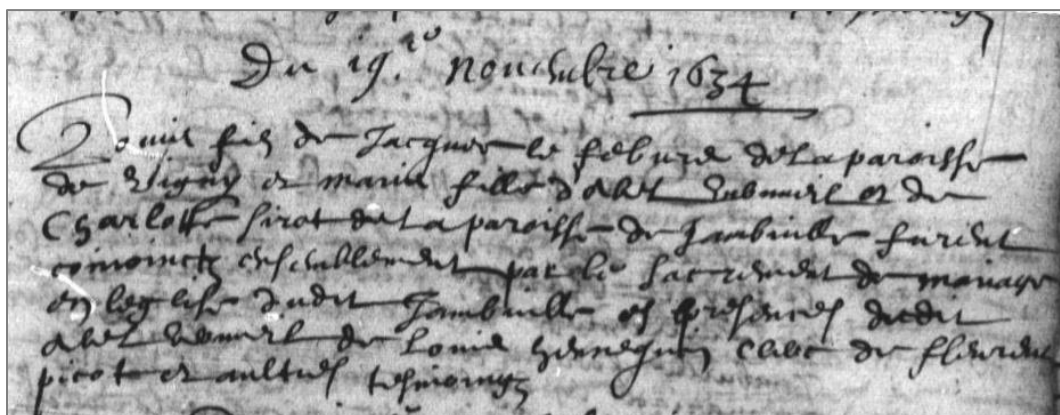 Du 19.re nouembre 1634
Louis filz de Jacques le febure de la paroisse
de Vigny et marie fille d'Abel et de
Charlotte sirot de la paroisse de Jambuille furent
conioinctz ensemblement par le sacrement de mariage
en leglise dudit Jambuille es presences dudit
Abel de Louis hennequin clerc de fleurent
picot et aultres tesmoingz